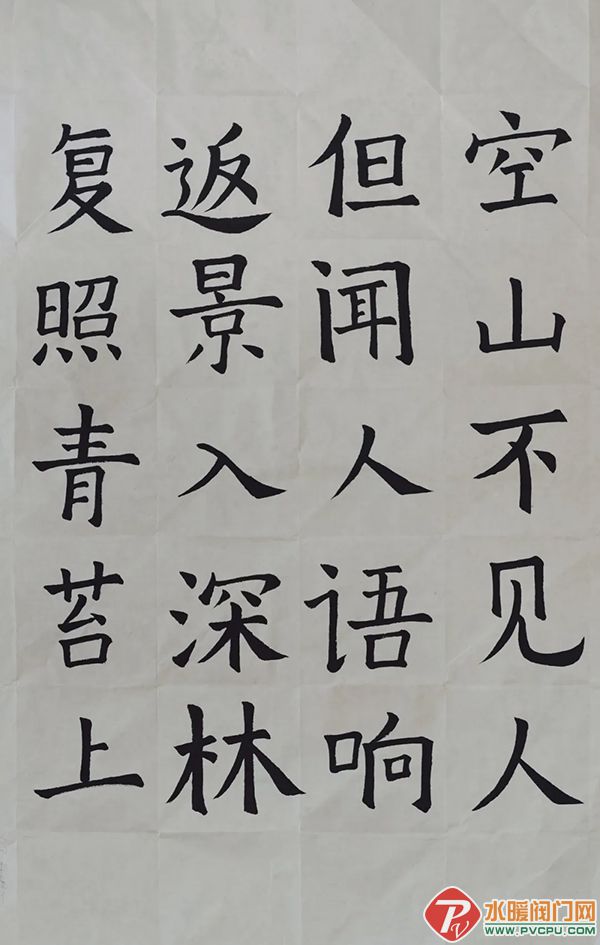 空山不见人
但闻人语响
返景入深林
复照青苔上
水暖阀门网
www.PVCPU.com